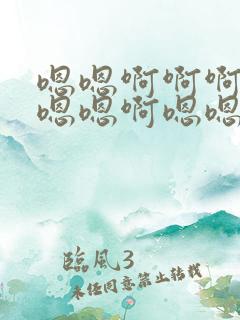 嗯嗯啊啊啊
嗯嗯啊嗯嗯
臨風3
未任同意禁止转载